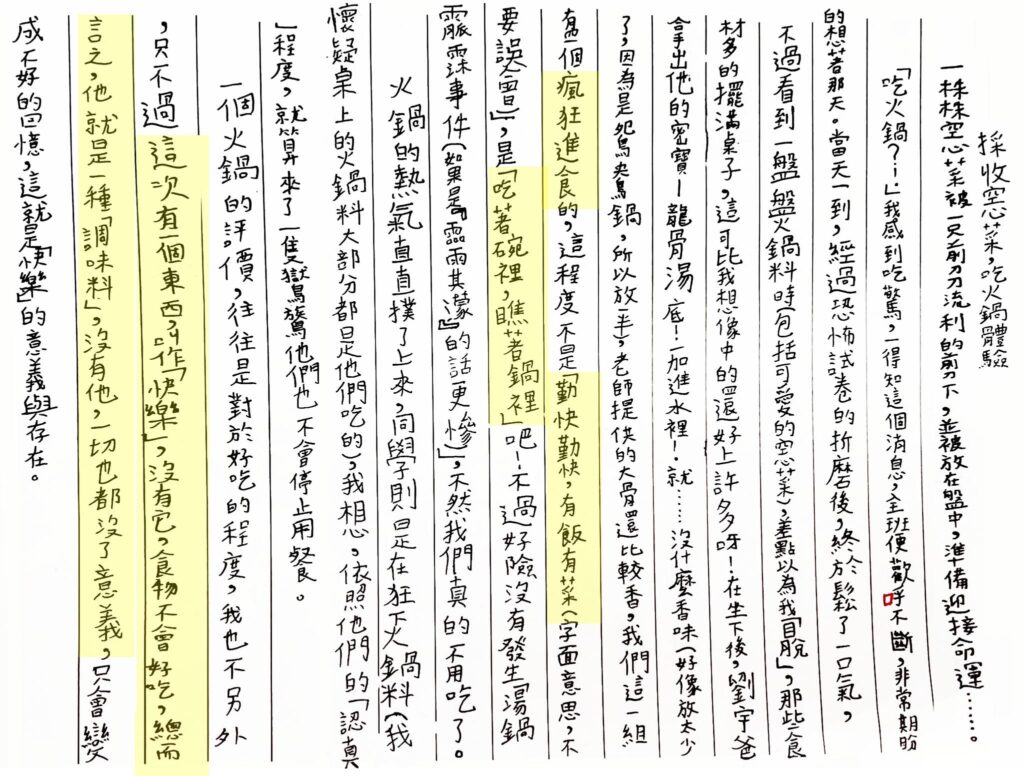 採收空心菜,吃火鍋體驗
一株株空心菜被一只剪刀流利的剪下,並被放在盤中,準備迎接命運……。
「吃火鍋?!」我感到吃驚,一得知這個消息,全班便歡呼不斷,非常期盼
的想著那天。當天一到,經過恐怖試卷的折磨後,終於鬆了一口氣,
不過看到一盤盤火鍋料時(包括可愛的空心菜),差點以為我「目脫」,那些食
材多的擺滿桌子,這可比我想像中的還好上許多呀!在坐下後,劉宇爸
拿出他的密寶—龍骨湯底!加進水裡!就……沒什麼香味(好像放太少
了,因為是鴛鴦鍋,所以放一半,老師提供的大骨還比較香,我們這一組
有個瘋狂進食的,這程度不是「勤快勤快,有飯有菜(字面意思,不
要誤會)」,是「吃著碗裡,瞧著鍋裡」吧!不過好險沒有發生「湯鍋
霡霂事件(如果是『霝雨其濛』的話更慘)」,不然我們真的不用吃了。
火鍋的熱氣直直撲了上來,同學則是在狂下火鍋料(我
懷疑桌上的火鍋料大部分都是他們吃的),我想,依照他們的「認真
」程度,就算來了一隻獄鷲他們也不會停止用餐。
一個火鍋的評價,往往是對於好吃的程度,我也不另外
,只不過這次有一個東西,叫作「快樂」,沒有它,食物不會好吃,總而
言之,他就是一種「調味料」,沒有他,一切也都沒了意義,只會變
成不好的回憶,這就是「快樂」的意義與存在。